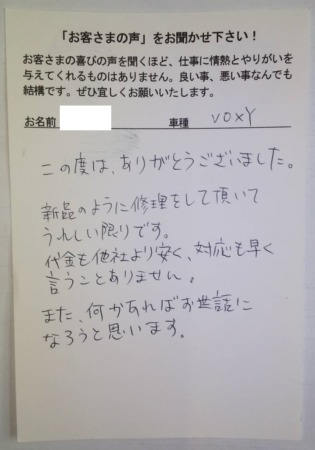 「お客さまの声」をお聞かせ下さい！
お客さまの喜びの声を聞くほど、仕事に情熱とやりがいを
与えてくれるものはありません。良い事、悪い事なんでも
結構です。ぜひ宜しくお願いいたします。
お名前 車種 VOXY
この度は、ありがとうございました。
新品のように修理をして頂いて
うれしい限りです。
代金も他社より安く、対応も早く
言うことありません。
また、何かあればお世話に
なろうと思います。